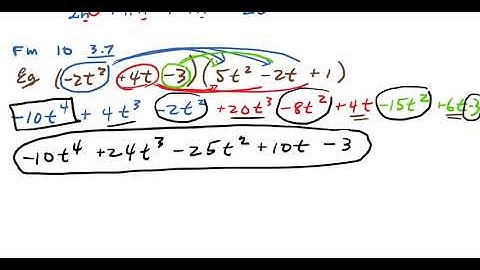 Fm 10 3.7
Eg (-2t² +4t -3)(5t² -2t +1)
-10t⁴ + 4t³ -2t² +20t³ -8t² +4t -15t² +6t -3
-10t⁴ +24t³ -25t² +10t -3